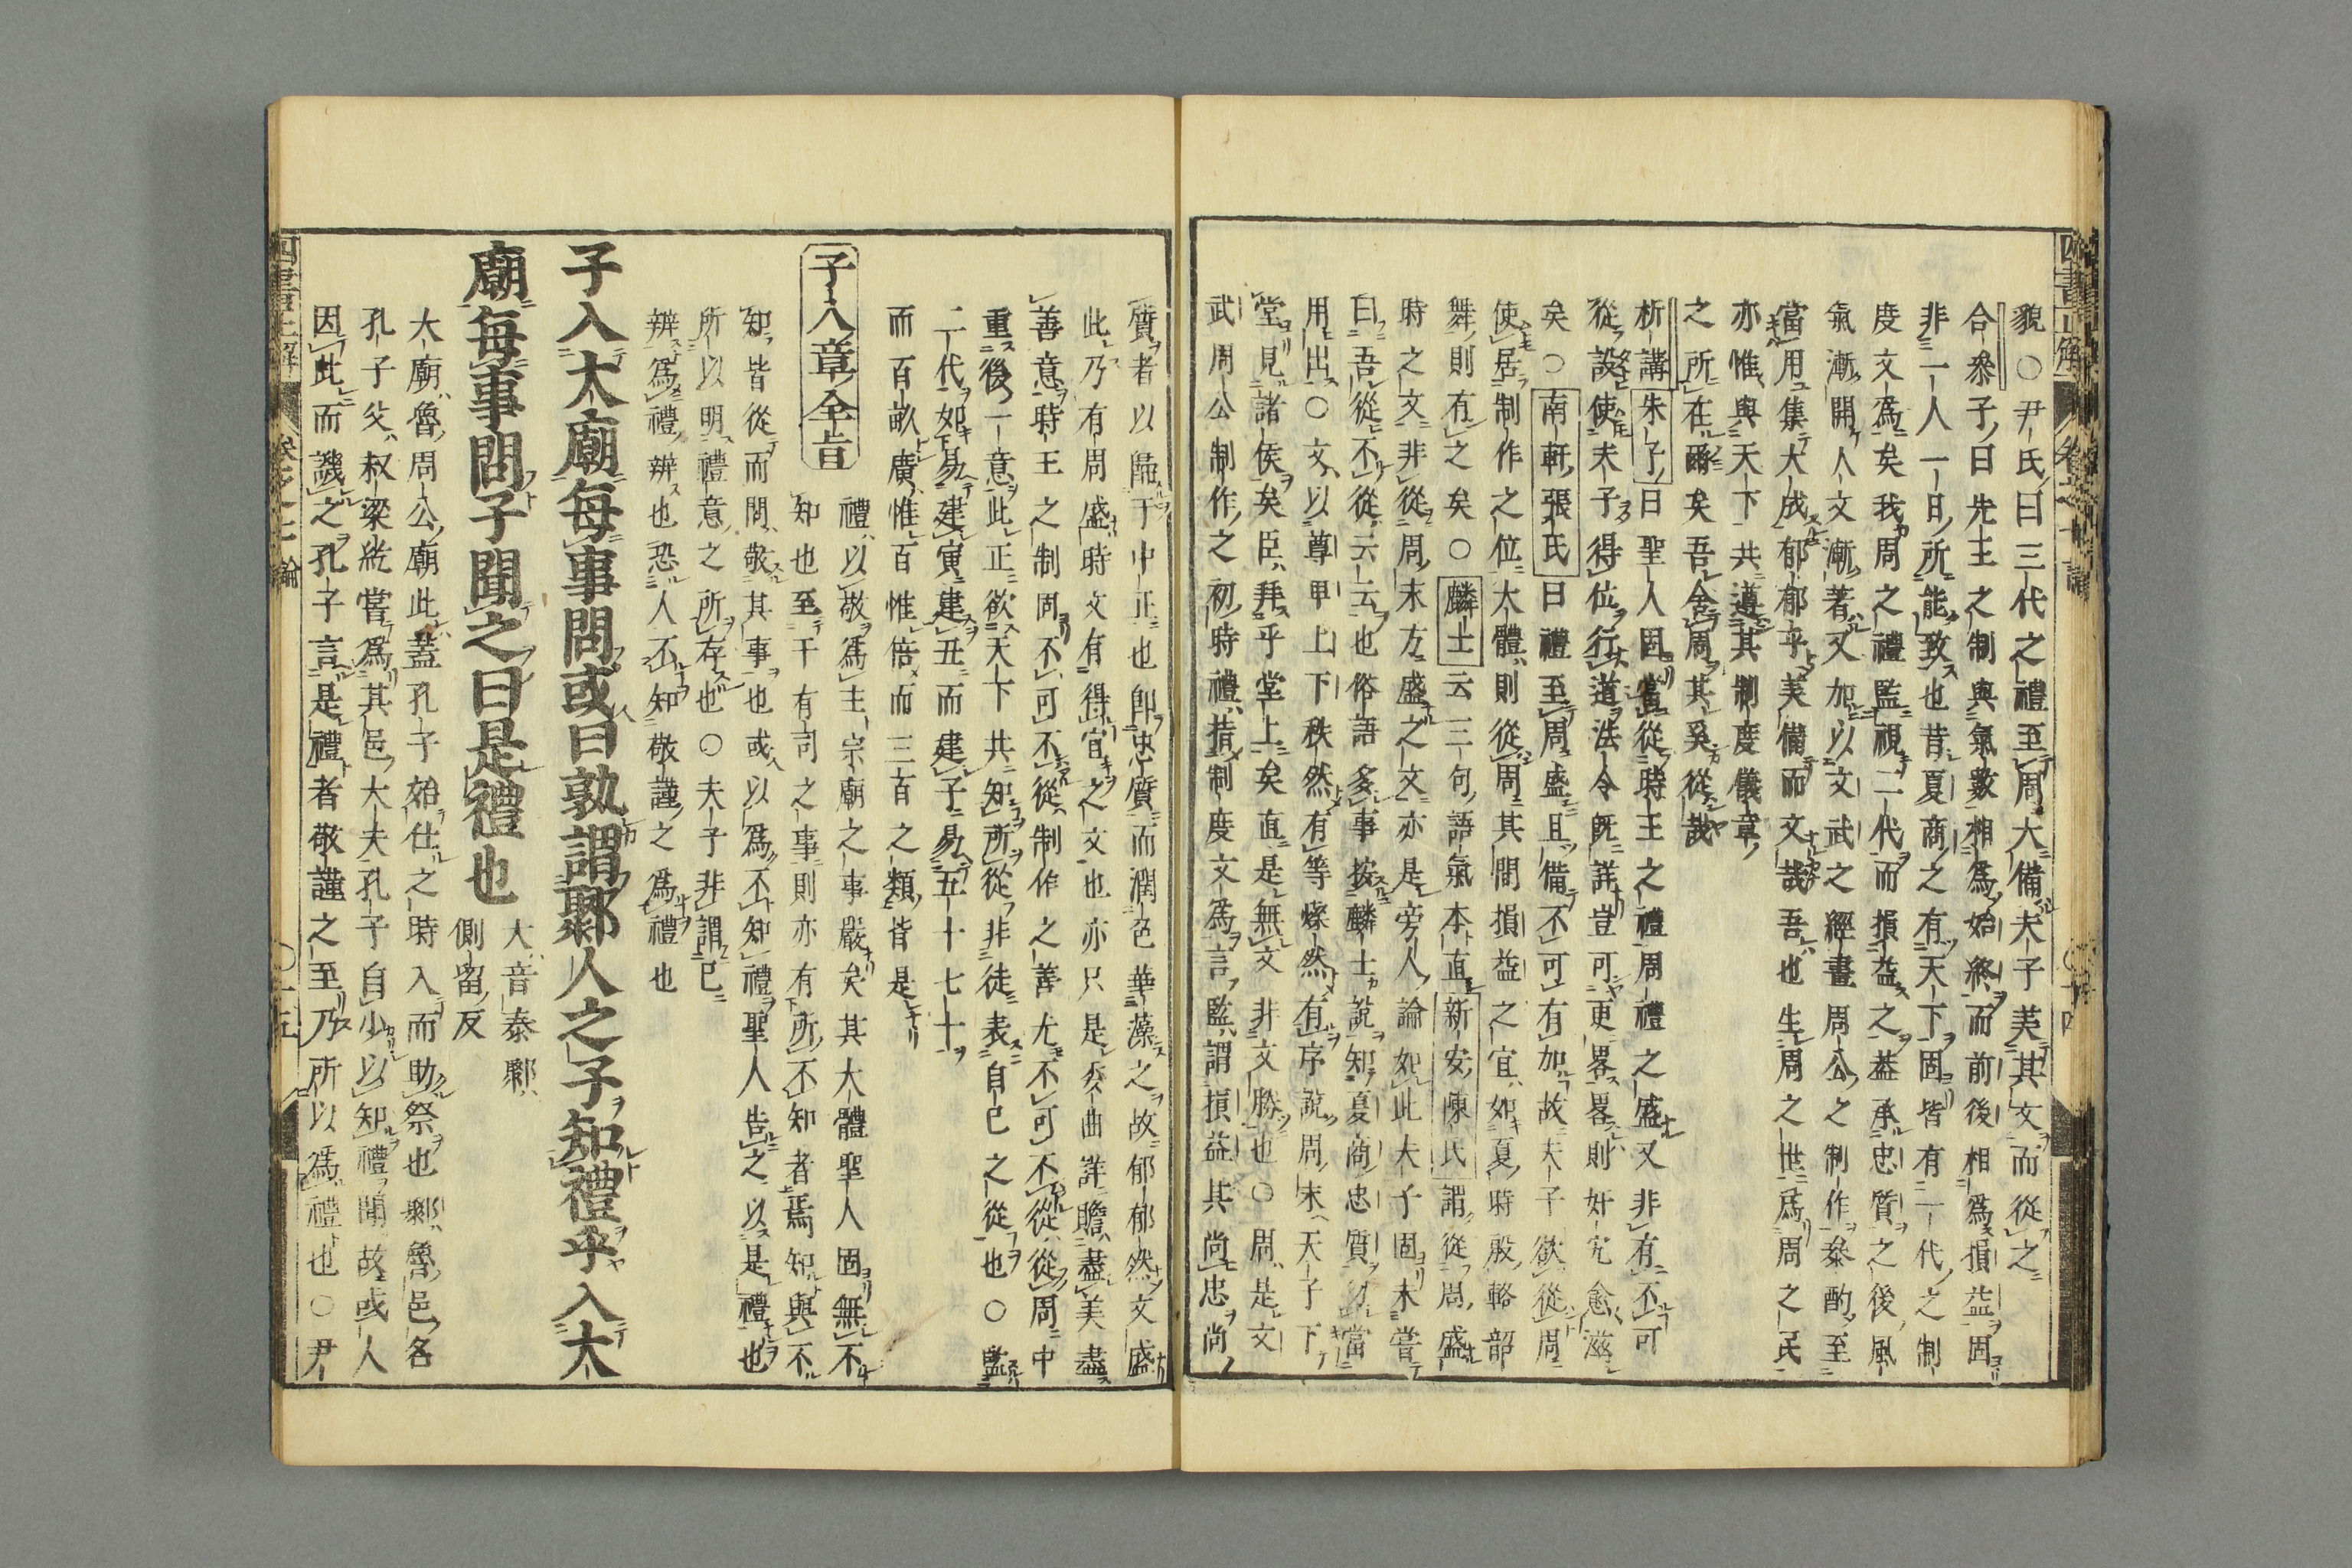 貌○尹氏曰三代之禮至周大備夫子美其文而從之
合叅子曰先王之制與氣數相爲始終而前後相爲損益固
非一人一日所能致也昔夏商之有天下固皆有一代之制
度文爲矣我周之禮監視二代而損益之蓋承忠質之後風
氣漸開人文漸著又加以文武之經畫周公之制作叅酌至
當用集大成郁郁乎美備而文哉吾也生周之世爲周之民
亦惟與天下共遵其制度儀章
之所在爾矣吾舍周其奚從哉
析講朱子曰聖人固當從時王之禮周禮之盛又非有不可
從設使夫子得位行道法令旣詳豈可更畧畧則奸宄愈滋
矣○南軒張氏曰禮至周盛且備不可有加故夫子欲從周
使居制作之位大體則從周其間損益之宜如夏時殷輅韶
舞則有之矣○麟士云三句語氣本直新安陳氏謂從周盛
時之文非從周末方盛之文亦是旁人論如此夫子固未嘗
曰吾從不從云云也俗語多事按麟士說知夏商忠質當
用出○文以尊卑上下秩然有等燦然有序說周末天子下
堂見諸侯矣臣拜乎堂上矣直是無文非文勝也○周是文
武周公制作之初時禮揩制度文爲言監謂損益其尚忠尚
質者以歸于中正也卽忠質而潤色華藻之故郁郁然文盛
此乃有周盛時文有得宜之文也亦只是委曲詳贍盡美盡
善意時王之制固不可不從制作之善尤不可不從從周中
重後一意此正欲天下共知所從非徒表自己之從也○監
二代如易建寅建丑而建子易五十七十
而百畝廣惟百惟倍而三百之類皆是
子入章全旨
禮以敬爲主宗廟之事嚴矣其大體聖人固無不
知也至于有司之事則亦有所不知者焉知與不
知皆從而問敬其事也或以爲不知禮聖人告之以是禮也
所以明禮意之所存也○夫子非謂已
辨爲禮辨也恐人不知敬謹之爲禮也
子入大廟每事問或曰孰謂鄹人之子知禮乎入大
廟每事問子聞之曰是禮也
大音泰鄹
側留反
大廟魯周公廟此蓋孔子始仕之時入而助祭也鄹魯邑名
孔子父叔梁紇嘗爲其邑大夫孔子自少以知禮聞故或人
因此而譏之孔子言是禮者敬謹之至乃所以爲禮也○尹